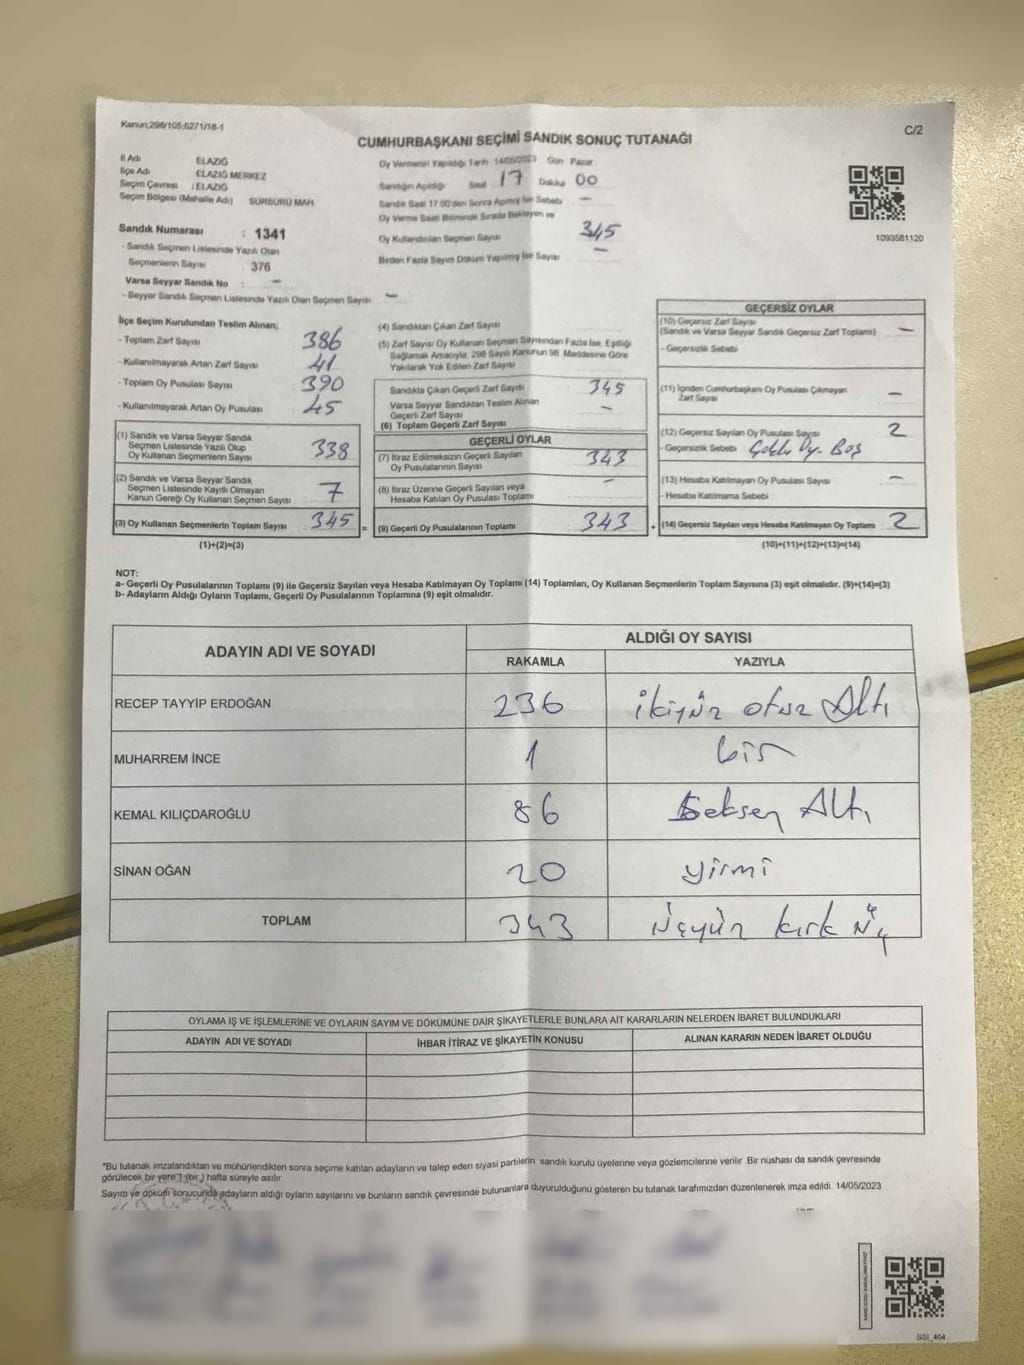 Kanun;298/105;6271/18-1
C/2
CUMHURBAŞKANI SEÇİMİ SANDIK SONUÇ TUTANAĞI
İl Adı ELAZIĞ
İlçe Adı ELAZIĞ MERKEZ
Seçim Çevresi : ELAZIĞ
Seçim Bölgesi (Mahalle Adı) SÜRSÜRÜ MAH.
Oy Vermenin Yapıldığı Tarih 14/05/2023 Gün Pazar
Sandığın Açıldığı Saat 17 Dakika 00
Sandık Saat 17:00'den Sonra Açılmış İse Sebebi —
Oy Verme Saati Bitiminde Sırada Bekleyen ve
Oy Kullandırılan Seçmen Sayısı 345
Birden Fazla Sayım Döküm Yapılmış İse Sayısı —
1093581120
Sandık Numarası : 1341
- Sandık Seçmen Listesinde Yazılı Olan
Seçmenlerin Sayısı : 376
Varsa Seyyar Sandık No : —
- Seyyar Sandık Seçmen Listesinde Yazılı Olan Seçmen Sayısı —
İlçe Seçim Kurulundan Teslim Alınan;
- Toplam Zarf Sayısı 386
- Kullanılmayarak Artan Zarf Sayısı 41
- Toplam Oy Pusulası Sayısı 390
- Kullanılmayarak Artan Oy Pusulası 45
(1) Sandık ve Varsa Seyyar Sandık
Seçmen Listesinde Yazılı Olup
Oy Kullanan Seçmenlerin Sayısı 338
(2) Sandık ve Varsa Seyyar Sandık
Seçmen Listesinde Kayıtlı Olmayan
Kanun Gereği Oy Kullanan Seçmen Sayısı 7
(3) Oy Kullanan Seçmenlerin Toplam Sayısı 345 =
(1)+(2)=(3)
(4) Sandıktan Çıkan Zarf Sayısı
(5) Zarf Sayısı Oy Kullanan Seçmen Sayısından Fazla İse, Eşitliği
Sağlamak Amacıyla, 298 Sayılı Kanunun 98. Maddesine Göre
Yakılarak Yok Edilen Zarf Sayısı
Sandıkta Çıkan Geçerli Zarf Sayısı 345
Varsa Seyyar Sandıktan Teslim Alınan
Geçerli Zarf Sayısı —
(6) Toplam Geçerli Zarf Sayısı
GEÇERLİ OYLAR
(7) İtiraz Edilmeksizin Geçerli Sayılan
Oy Pusulalarının Sayısı 343
(8) İtiraz Üzerine Geçerli Sayılan veya
Hesaba Katılan Oy Pusulası Toplamı —
(9) Geçerli Oy Pusulalarının Toplamı 343 +
GEÇERSİZ OYLAR
(10) Geçersiz Zarf Sayısı
(Sandık ve Varsa Seyyar Sandık Geçersiz Zarf Toplamı) —
- Geçersizlik Sebebi
(11) İçinden Cumhurbaşkanı Oy Pusulası Çıkmayan
Zarf Sayısı —
(12) Geçersiz Sayılan Oy Pusulası Sayısı 2
- Geçersizlik Sebebi Çoklu Oy - Boş
(13) Hesaba Katılmayan Oy Pusulası Sayısı —
- Hesaba Katılmama Sebebi
(14) Geçersiz Sayılan veya Hesaba Katılmayan Oy Toplamı 2
(10)+(11)+(12)+(13)=(14)
NOT:
a- Geçerli Oy Pusulalarının Toplamı (9) ile Geçersiz Sayılan veya Hesaba Katılmayan Oy Toplamı (14) Toplamları, Oy Kullanan Seçmenlerin Toplam Sayısına (3) eşit olmalıdır. (9)+(14)=(3)
b- Adayların Aldığı Oyların Toplamı, Geçerli Oy Pusulalarının Toplamına (9) eşit olmalıdır.
ADAYIN ADI VE SOYADI
ALDIĞI OY SAYISI
RAKAMLA YAZIYLA
RECEP TAYYİP ERDOĞAN 236 ikiyüz otuz Altı
MUHARREM İNCE 1 bir
KEMAL KILIÇDAROĞLU 86 Seksen Altı
SİNAN OĞAN 20 yirmi
TOPLAM 343 üçyüz kırk üç
OYLAMA İŞ VE İŞLEMLERİNE VE OYLARIN SAYIM VE DÖKÜMÜNE DAİR ŞİKAYETLERLE BUNLARA AİT KARARLARIN NELERDEN İBARET BULUNDUKLARI
ADAYIN ADI VE SOYADI İHBAR İTİRAZ VE ŞİKAYETİN KONUSU ALINAN KARARIN NEDEN İBARET OLDUĞU
*Bu tutanak imzalandıktan ve mühürlendikten sonra seçime katılan adayların ve talep eden siyasi partilerin sandık kurulu üyelerine veya gözlemcilerine verilir. Bir nüshası da sandık çevresinde
görülecek bir yere 1 (bir,) hafta süreyle asılır
Sayım ve döküm sonucunda adayların aldığı oyların sayılarını ve bunların sandık çevresinde bulunanlara duyurulduğunu gösteren bu tutanak tarafımızdan düzenlenerek imza edildi. 14/05/2023
SSI_404